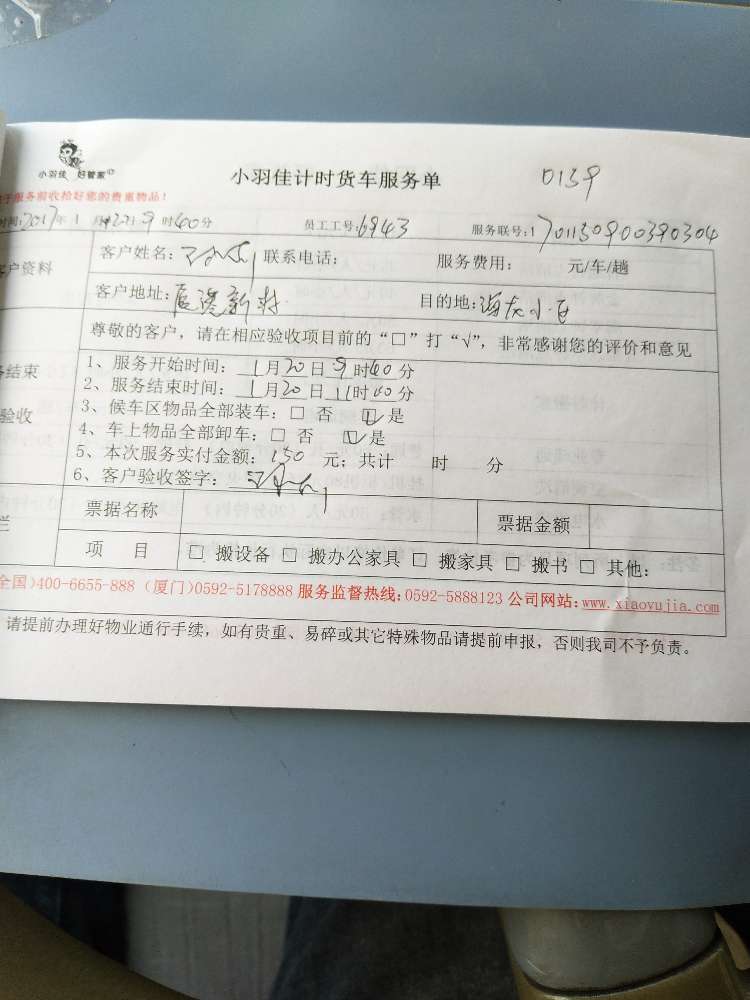 小羽佳 好管家
小羽佳计时货车服务单 0139
于服务前收拾好您的贵重物品!
时间:2017年1月 日 9时40分 员工工号:6943 服务联号:1701150900390304
客户资料
客户姓名: 联系电话: 服务费用: 元/车/趟
客户地址: 新村 目的地: 小区
尊敬的客户，请在相应验收项目前的“□”打“√”，非常感谢您的评价和意见
结束
验收
1、服务开始时间: 1月20日9时40分
2、服务结束时间: 1月20日11时40分
3、候车区物品全部装车: □ 否 ☑是
4、车上物品全部卸车: □ 否 ☑是
5、本次服务实付金额: 150 元; 共计 时 分
6、客户验收签字:
栏
票据名称 票据金额
项 目 □ 搬设备 □ 搬办公家具 □ 搬家具 □ 搬书 □ 其他:
全国)400-6655-888 (厦门)0592-5178888 服务监督热线:0592-5888123 公司网站:www.xiaoyujia.com
请提前办理好物业通行手续，如有贵重、易碎或其它特殊物品请提前申报，否则我司不予负责。